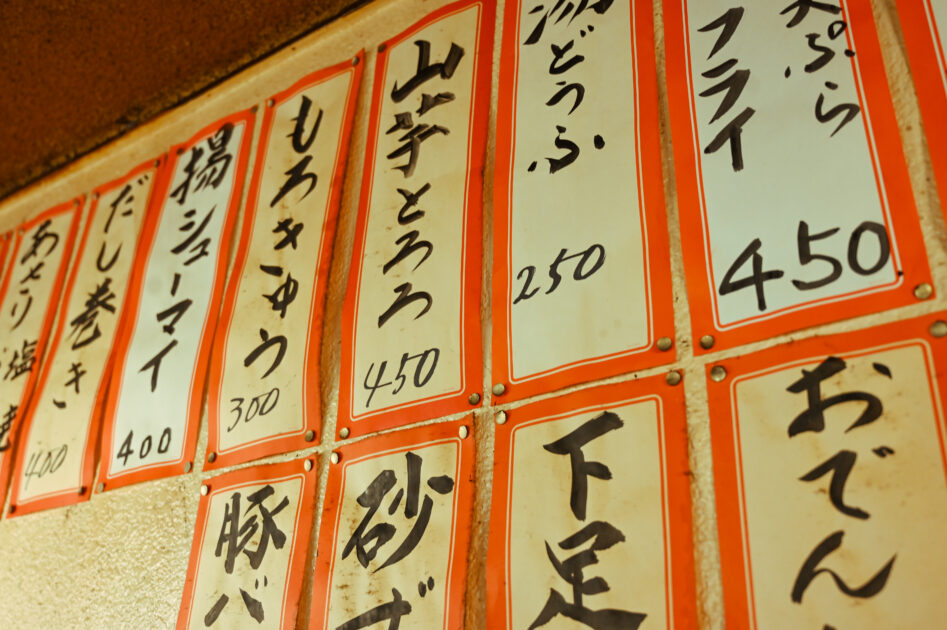 天ぷら
フライ
450
湯どうふ
250
山芋とろろ
450
もろきゅう
300
揚シューマイ
400
だし巻き
400
あさり塩
焼
おでん
下足
砂ズ
豚バ